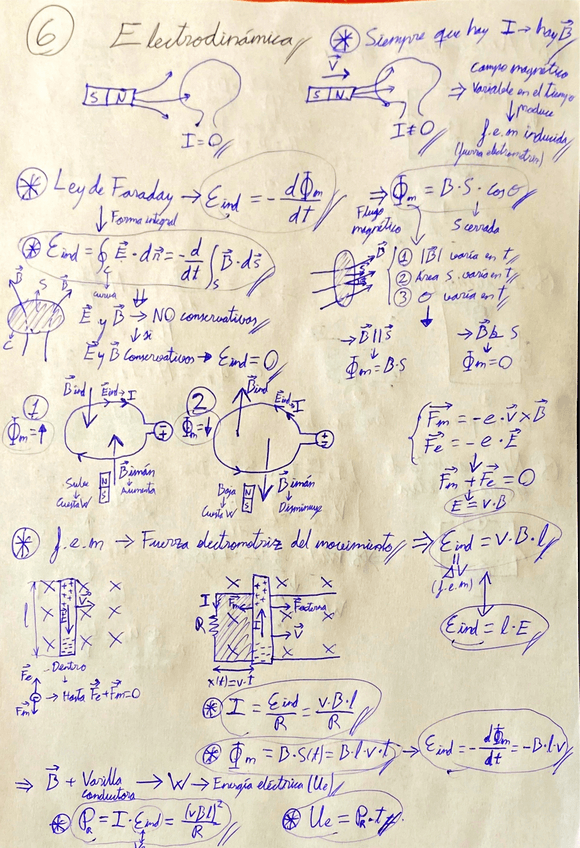 6 Electrodinámica
* Siempre que hay I → hay B⃗
S N
I=0
V⃗
S N
I≠0
⇒ campo magnético
variable en el tiempo
↓ produce
f.e.m inducida
(fuerza electromotriz)
* Ley de Faraday → Ɛind = - dΦm/dt ⇒ Φm = B·S·cosσ
↓ Forma integral
Flujo magnético
S cerrada
* Ɛind = ∮c E⃗·dr⃗ = -d/dt ∫s B⃗·ds⃗
curva
B⃗ S B⃗
C⃗
E⃗ y B⃗ → NO conservativos
↓ si
E⃗ y B⃗ conservativos → Ɛind = 0
B⃗
① |B⃗| varía en t
② Área S varía en t
③ σ varía en t
→ B⃗ || S⃗
Φm = B·S
→ B⃗ ⊥ S
Φm = 0
1
Φm = ↑
B⃗ind E⃗ind → I
Sube
↓
Cuesta W
N
S
B⃗imán
↓
Aumenta
2
Φm = ↓
B⃗ind
E⃗ind → I
Baja
↓
Cuesta W
N
S
B⃗imán
↓
Disminuye
F⃗m = -e·v⃗×B⃗
F⃗e = -e·E⃗
F⃗m + F⃗e = 0
E = v·B
* f.e.m → Fuerza electromotriz del movimiento ⇒ Ɛind = v·B·l
(f.e.m)
Ɛind = l·E
l
V⃗
Dentro
F⃗e
F⃗m
→ Hasta F⃗e+F⃗m=0
I
R
F⃗m
I
F⃗externa
V⃗
x(t)=v·t
* I = Ɛind/R = v·B·l/R
* Φm = B·S(t) = B·l·v·t → Ɛind = - dΦm/dt = -B·l·v
⇒ B⃗ + Varilla conductora → W → Energía eléctrica (Ue)
* PR = I·Ɛind = (vBl)²/R
* Ue = PR·t